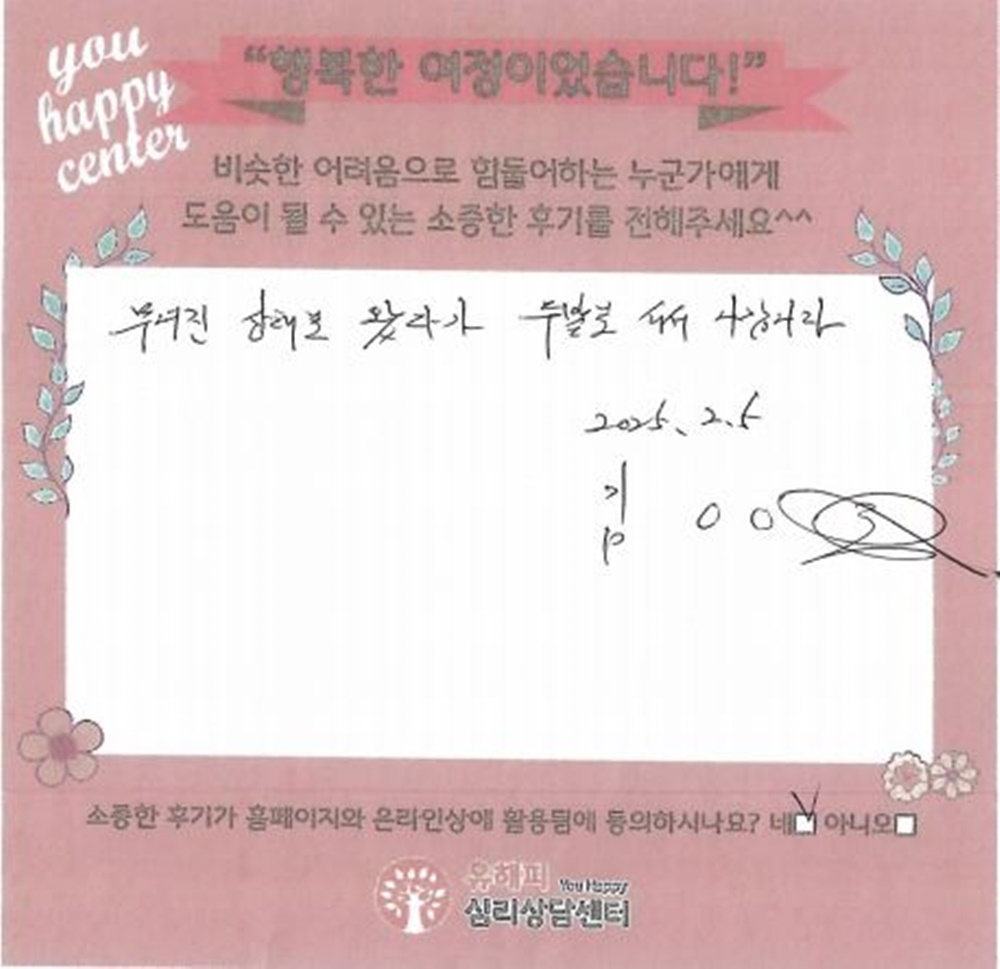 you
happy
center
“행복한 여정이었습니다!”
비슷한 어려움으로 힘들어하는 누군가에게
도움이 될 수 있는 소중한 후기를 전해주세요^^
무너진 상태로 왔다가 두발로 서서
2025. 2. 5
김 O O
소중한 후기가 홈페이지와 온라인상에 활용됨에 동의하시나요? 네 아니오
유해피 You Happy
심리상담센터